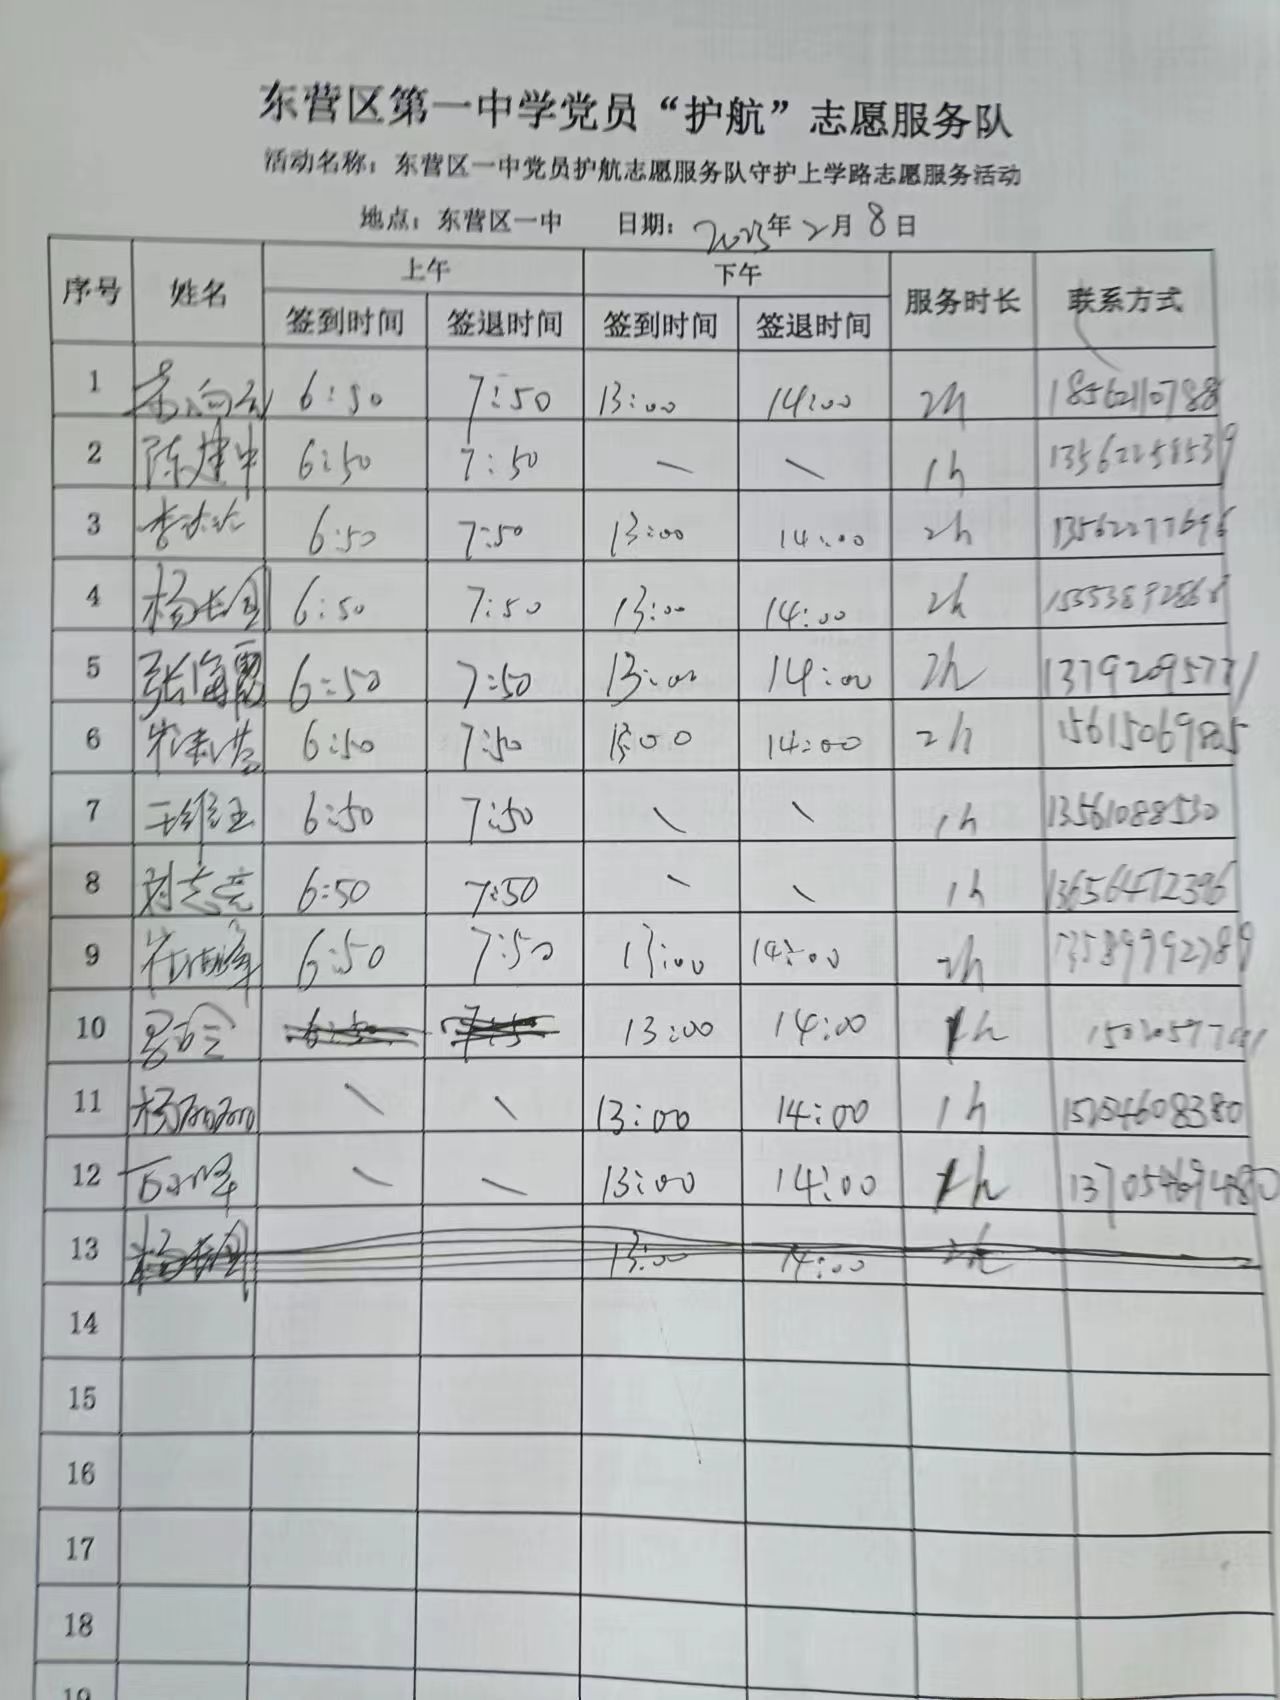 东营区第一中学党员“护航”志愿服务队
活动名称：东营区一中党员护航志愿服务队守护上学路志愿服务活动
地点：东营区一中 日期：2023年2月8日
序号 姓名 上午 下午 服务时长 联系方式
签到时间 签退时间 签到时间 签退时间
1 6:50 7:50 13:00 14:00 2h 18562110788
2 陈建中 6:50 7:50 1h 13562258539
3 6:50 7:50 13:00 14:00 2h 13562277696
4 杨长国 6:50 7:50 13:00 14:00 2h
5 张海霞 6:50 7:50 13:00 14:00 2h
6 6:50 7:50 13:00 14:00 2h 15615069805
7 王维玉 6:50 7:50 1h 13561088530
8 刘志亮 6:50 7:50 1h 13656472396
9 6:50 7:50 13:00 14:00 2h 13589992789
10 6:50 7:50 13:00 14:00 1h
11 杨丽丽 13:00 14:00 1h
12 13:00 14:00 1h
13 杨长国 13:00 14:00 2h
14
15
16
17
18
19